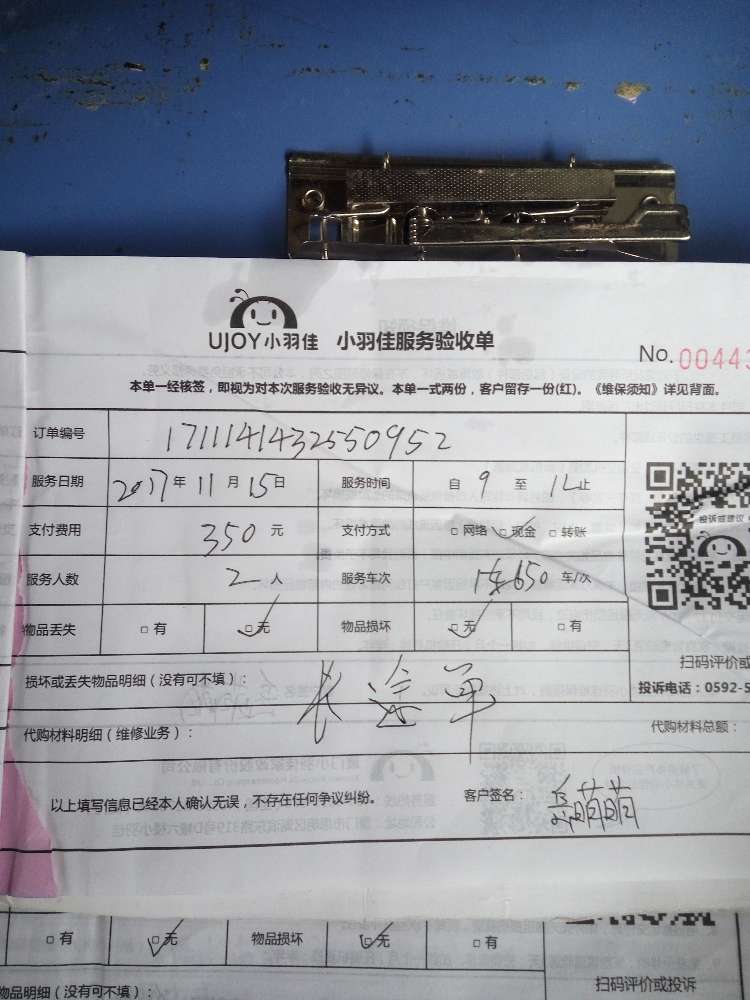 UJOY小羽佳 小羽佳服务验收单
No. 00443
本单一经核签，即视为对本次服务验收无异议。本单一式两份，客户留存一份(红)。《维保须知》详见背面。
订单编号 1711141432550952
服务日期 2017年11月15日 服务时间 自9至12止
支付费用 350元 支付方式 □网络 □现金 □转账
服务人数 2人 服务车次 650 车/次
物品丢失 □有 □无 物品损坏 □无 □有
投诉或建议
扫码评价或
损坏或丢失物品明细（没有可不填）： 长途单
投诉电话：0592-5
代购材料明细（维修业务）： 代购材料总额：
以上填写信息已经本人确认无误，不存在任何争议纠纷。 客户签名： 萌萌
□有 □无 物品损坏 □无 □有
物品明细（没有可不填）： 扫码评价或投诉